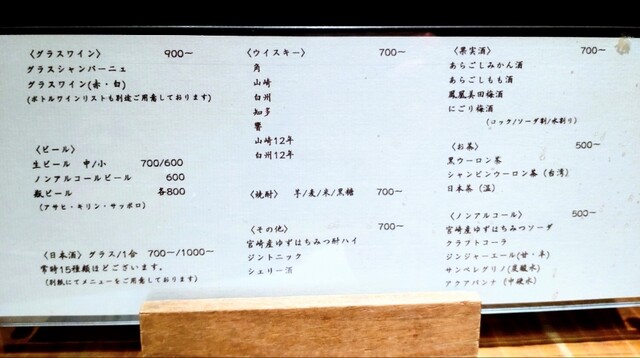 〈グラスワイン〉 900～
グラスシャンパーニュ
グラスワイン(赤・白)
(ボトルワインリストも別途ご用意しております)
〈ビール〉
生ビール 中/小 700/600
ノンアルコールビール 600
瓶ビール 各800
(アサヒ・キリン・サッポロ)
〈日本酒〉グラス/1合 700～/1000～
常時15種類ほどございます。
(別紙にてメニューをご用意しております)
〈ウイスキー〉 700～
角
山崎
白州
知多
響
山崎12年
白州12年
〈焼酎〉 芋/麦/米/黒糖 700～
〈その他〉 700～
宮崎産ゆずはちみつ酎ハイ
ジントニック
シェリー酒
〈果実酒〉 700～
あらごしみかん酒
あらごしもも酒
鳳凰美田梅酒
にごり梅酒
(ロック/ソーダ割/水割り)
〈お茶〉 500～
黒ウーロン茶
シャンピンウーロン茶 (台湾)
日本茶 (温)
〈ノンアルコール〉 500～
宮崎産ゆずはちみつソーダ
クラフトコーラ
ジンジャーエール(甘・辛)
サンペレグリノ(炭酸水)
アクアパンナ (中硬水)